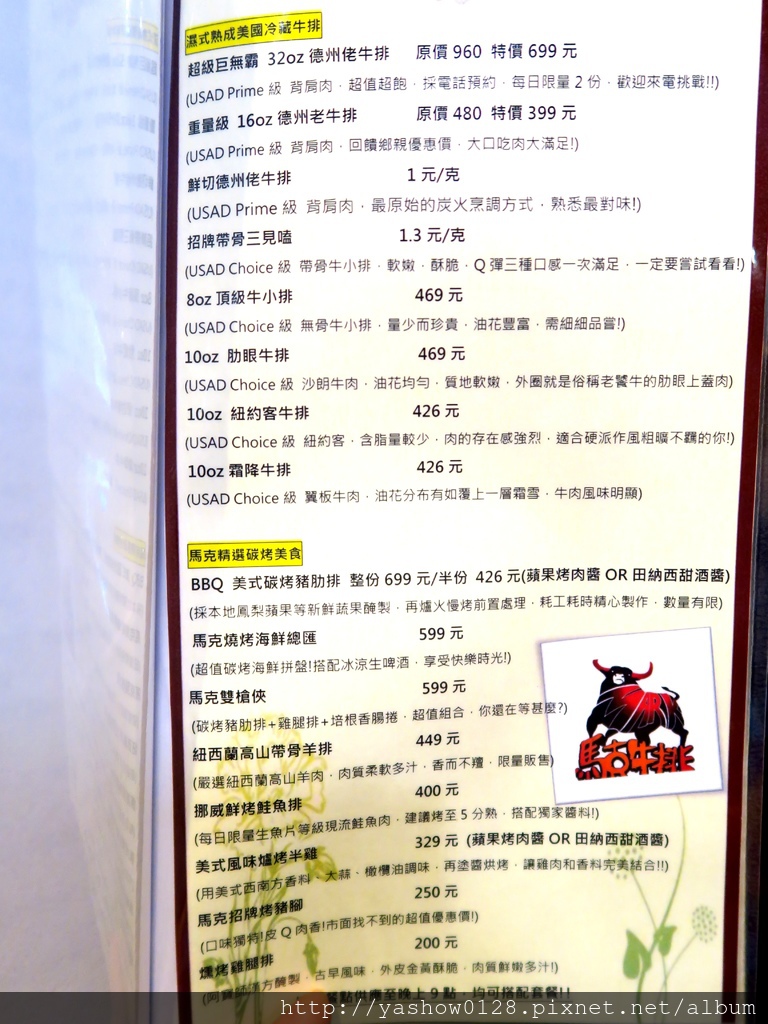 濕式熟成美國冷藏牛排
超級巨無霸 32oz 德州佬牛排 原價 960 特價 699 元
(USAD Prime 級 背肩肉．超值超飽．採電話預約．每日限量 2 份．歡迎來電挑戰!!)
重量級 16oz 德州老牛排 原價 480 特價 399 元
(USAD Prime 級 背肩肉．回饋鄉親優惠價．大口吃肉大滿足!)
鮮切德州佬牛排 1 元/克
(USAD Prime 級 背肩肉．最原始的炭火烹調方式．熟悉最對味!)
招牌帶骨三見嗑 1.3 元/克
(USAD Choice 級 帶骨牛小排．軟嫩．酥脆．Q 彈三種口感一次滿足．一定要嘗試看看!)
8oz 頂級牛小排 469 元
(USAD Choice 級 無骨牛小排．量少而珍貴．油花豐富．需細細品嘗!)
10oz 肋眼牛排 469 元
(USAD Choice 級 沙朗牛肉．油花均勻．質地軟嫩．外圈就是俗稱老饕牛的肋眼上蓋肉)
10oz 紐約客牛排 426 元
(USAD Choice 級 紐約客．含脂量較少．肉的存在感強烈．適合硬派作風粗曠不羈的你!)
10oz 霜降牛排 426 元
(USAD Choice 級 翼板牛肉．油花分布有如覆上一層霜雪．牛肉風味明顯)
馬克精選碳烤美食
BBQ 美式碳烤豬肋排 整份 699 元/半份 426 元(蘋果烤肉醬 OR 田納西甜酒醬)
(採本地鳳梨蘋果等新鮮蔬果醃製．再爐火慢烤前置處理．耗工耗時精心製作．數量有限)
馬克燒烤海鮮總匯 599 元
(超值碳烤海鮮拼盤!搭配冰涼生啤酒．享受快樂時光!)
馬克雙槍俠 599 元
(碳烤豬肋排+雞腿排+培根香腸捲．超值組合．你還在等甚麼?)
紐西蘭高山帶骨羊排 449 元
(嚴選紐西蘭高山羊肉．肉質柔軟多汁．香而不羶．限量販售)
挪威鮮烤鮭魚排 400 元
(每日限量生魚片等級現流鮭魚肉．建議烤至 5 分熟．搭配獨家醬料!)
美式風味爐烤半雞 329 元 (蘋果烤肉醬 OR 田納西甜酒醬)
(用美式西南方香料．大蒜、橄欖油調味．再塗醬烘烤．讓雞肉和香料完美結合!!)
馬克招牌烤豬腳 250 元
(口味獨特!皮 Q 肉香!市面找不到的超值優惠價!)
燻烤雞腿排 200 元
(阿寶師漢方醃製．古早風味．外皮金黃酥脆．肉質鮮嫩多汁!)
餐點供應至晚上 9 點．均可搭配套餐!!
馬克牛排
http://yashow0128.pixnet.net/album